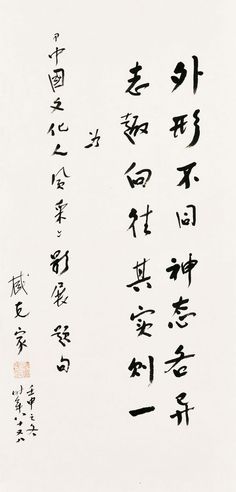 外形不同神态各异
志趣向往其实则一
为
《中国文化人风采》影展题句
臧克家
壬申之冬
时年八十又八